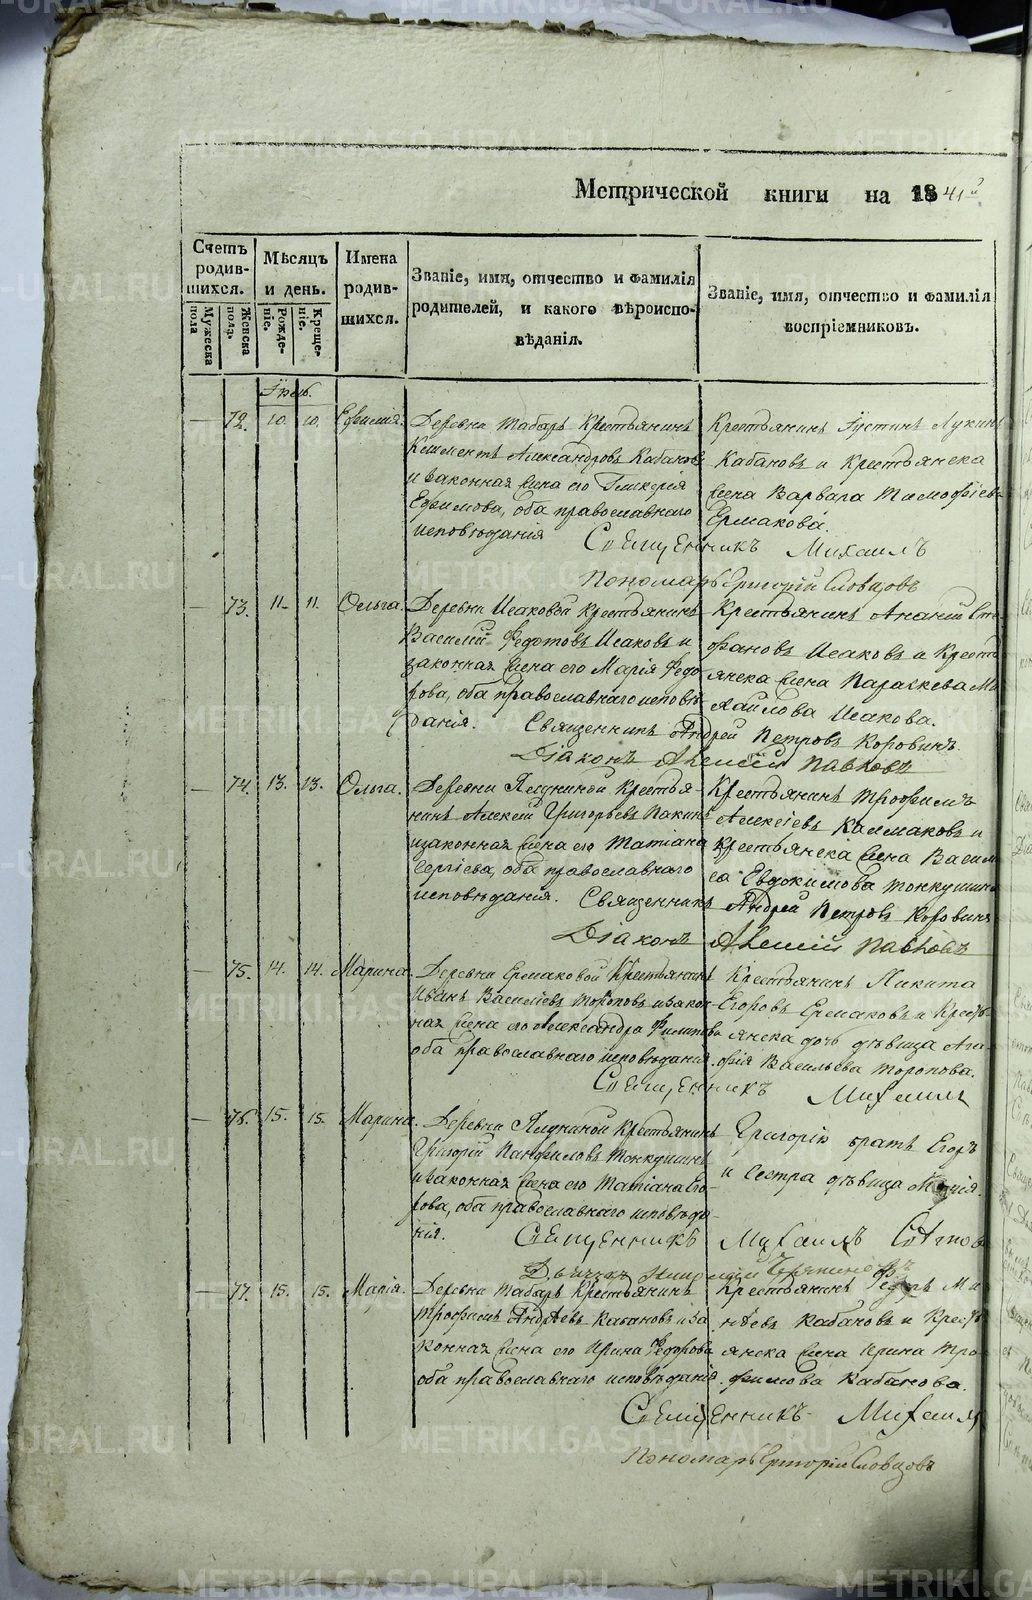 Метрической книги на 1841й
Счетъ родив-шихся.
Мужеска пола
Женска пола.
Мѣсяцъ и день.
Рожде-ніе.
Креще-ніе.
Имена родив-шихся.
Званіе, имя, отчество и фамилія
родителей, и какого вѣроиспо-
вѣданія.
Званіе, имя, отчество и фамилія
воспріемниковъ.
— 72. 10. 10. Евфимія. Деревни Табаръ Крестьянинъ
Климентъ Александровъ Кабановъ
и законная жена его Гликерія
Ефимова, оба православнаго
исповѣданія
Крестьянинъ Іустинъ Лукинъ
Кабановъ и Крестьянска
жена Варвара Тимофѣева
Ермакова.
Священникъ Михаилъ
Пономарь Григорій Словцовъ
— 73. 11. 11. Ольга. Деревни Исаковой крестьянинъ
Василій Федотовъ Исаковъ и
законная жена его Марія Федо-
рова, оба православнаго исповѣ-
данія.
Крестьянинъ Ананій Сте-
фановъ Исаковъ и Кресть-
янска жена Параскева Ми-
хайлова Исакова.
Священникъ Андрей Петровъ Коровинъ.
Діаконъ Алексій Павловъ
— 74. 13. 13. Ольга. Деревни Ялуниной Крестья-
нинъ Алексей Григорьевъ
и законная жена его Татіана
Сергіева, оба православнаго
исповѣданія.
Крестьянинъ Трофимъ
Алексіевъ Калмаковъ и
Крестьянска жена Васили-
са Евдокимова Тонкушина
Священникъ Андрей Петровъ Коровинъ
Діаконъ Алексій Павловъ
— 75. 14. 14. Марина. Деревни Ермаковой Крестьянинъ
Иванъ Василіевъ Тороповъ и закон-
ная жена его Александра Филипова
оба православнаго исповѣданія.
Крестьянинъ Никита
Егоровъ Ермаковъ и Кресть-
янска дочь дѣвица Ага-
фія Васильева Торопова.
Священникъ Михаилъ
— 76. 15. 15. Марина. Деревни Ялуниной Крестьянинъ
Григорій Панфиловъ Тонкушинъ
и законная жена его Татіана Его-
рова, оба православнаго исповѣда-
нія.
Григорію братъ Егоръ
и сестра дѣвица Марія.
Священникъ Михаилъ
— 77. 15. 15. Марія. Деревни Табаръ Крестьянинъ
Трофимъ Андрѣевъ Кабановъ и за-
конная жена его Ирина Федорова
оба православнаго исповѣданія.
Крестьянинъ Федоръ Ми-
нѣевъ Кабановъ и Кресть-
янска жена Ирина Тро-
фимова Кабанова.
Священникъ Михаилъ
Пономарь Григорій Словцовъ
METRIKI.GASO-URAL.RU